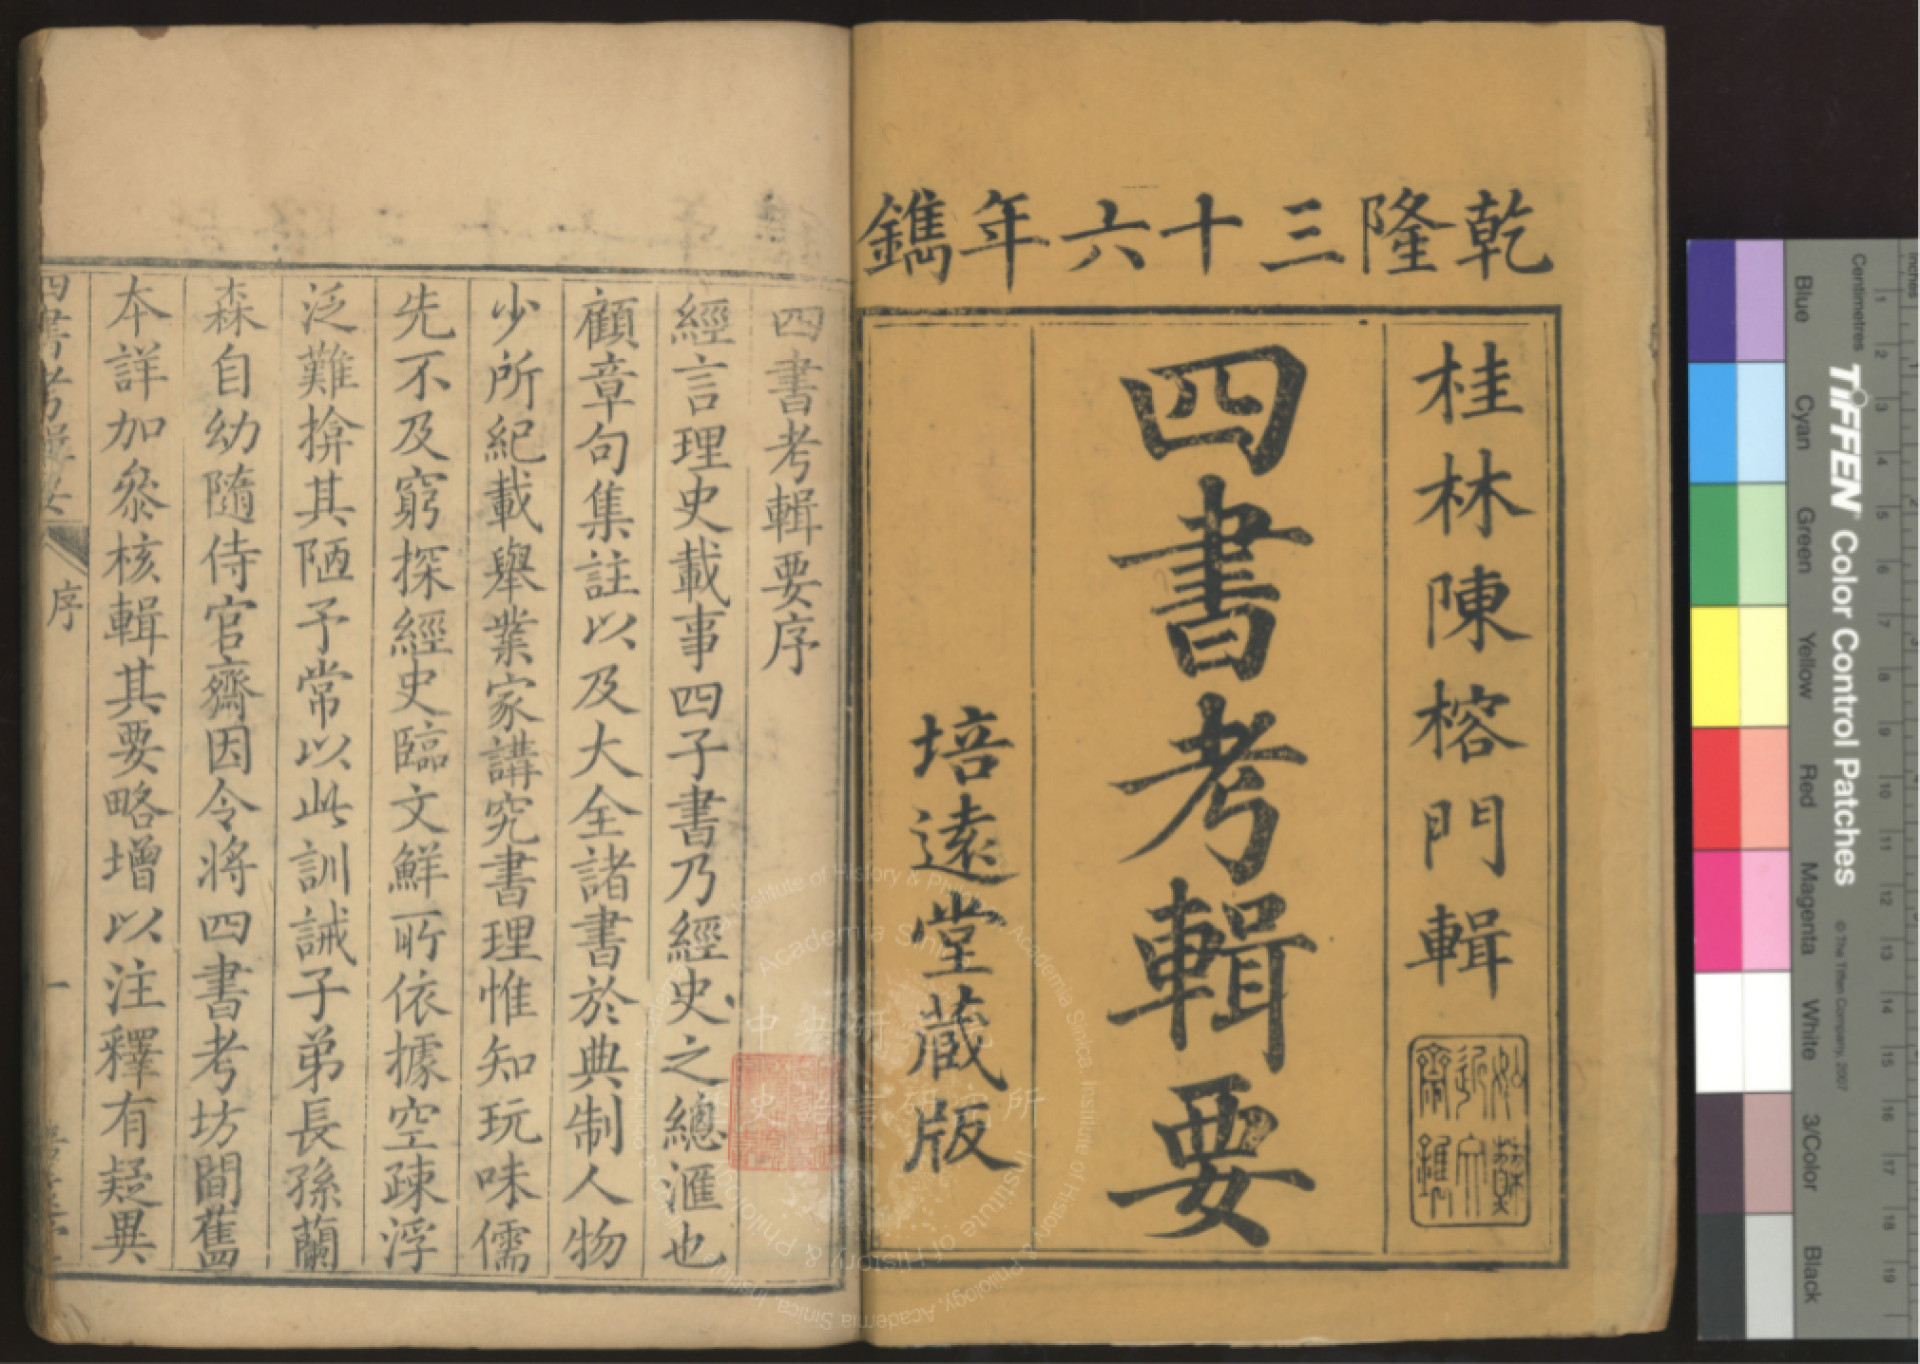 乾隆三十六年鐫
桂林陳榕門輯
四書考輯要
培遠堂藏版
四書考輯要序
經言理史載事四子書乃經史之總滙也
顧章句集註以及大全諸書於典制人物
少所紀載舉業家講究書理惟知玩味儒
先不及窮探經史臨文鮮所依據空疎浮
泛難揜其陋予常以此訓誡子弟長孫蘭
森自幼隨侍官齋因令將四書考坊間舊
本詳加叅核輯其要略增以注釋有疑異
四書考輯要
序
一
中央研究院
史語言研究所
Institute of History & Philology, Academia Sinica
Inches
Centimetres
1 2 3 4 5 6 7 8 9 10 11 12 13 14 15 16 17 18 19
TIFFEN Color Control Patches
© The Tiffen Company, 2007
Blue
Cyan
Green
Yellow
Red
Magenta
White
3/Color
Black